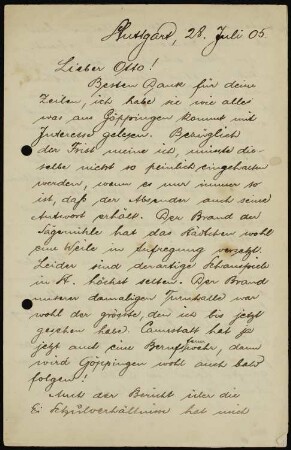 Stuttgart, 28. Juli 05.
Lieber Otto!
Besten Dank für deine
Zeilen, ich habe sie wie alles
was aus Göppingen kommt mit
Interesse gelesen. Bezüglich
der Frist meine ich, müsste die-
selbe nicht so peinlich eingehalten
werden, wenn es nur immer so
ist, daß der Absender auch seine
Antwort erhält. Der Brand der
Sägemühle hat das Städtchen wohl
eine Weile in Aufregung versetzt.
Leider sind derartige Schauspiele
in St. höchst selten. Der Brand
unserer damaligen Turnhalle war
wohl der grösste, den ich bis jetzt
gesehen habe. Cannstatt hat ja
jetzt auch eine Berufsfeuerwehr, dann
wird Göppingen wohl auch bald
folgen!
Auch der Bericht über die
Schulverhältnisse hat mich